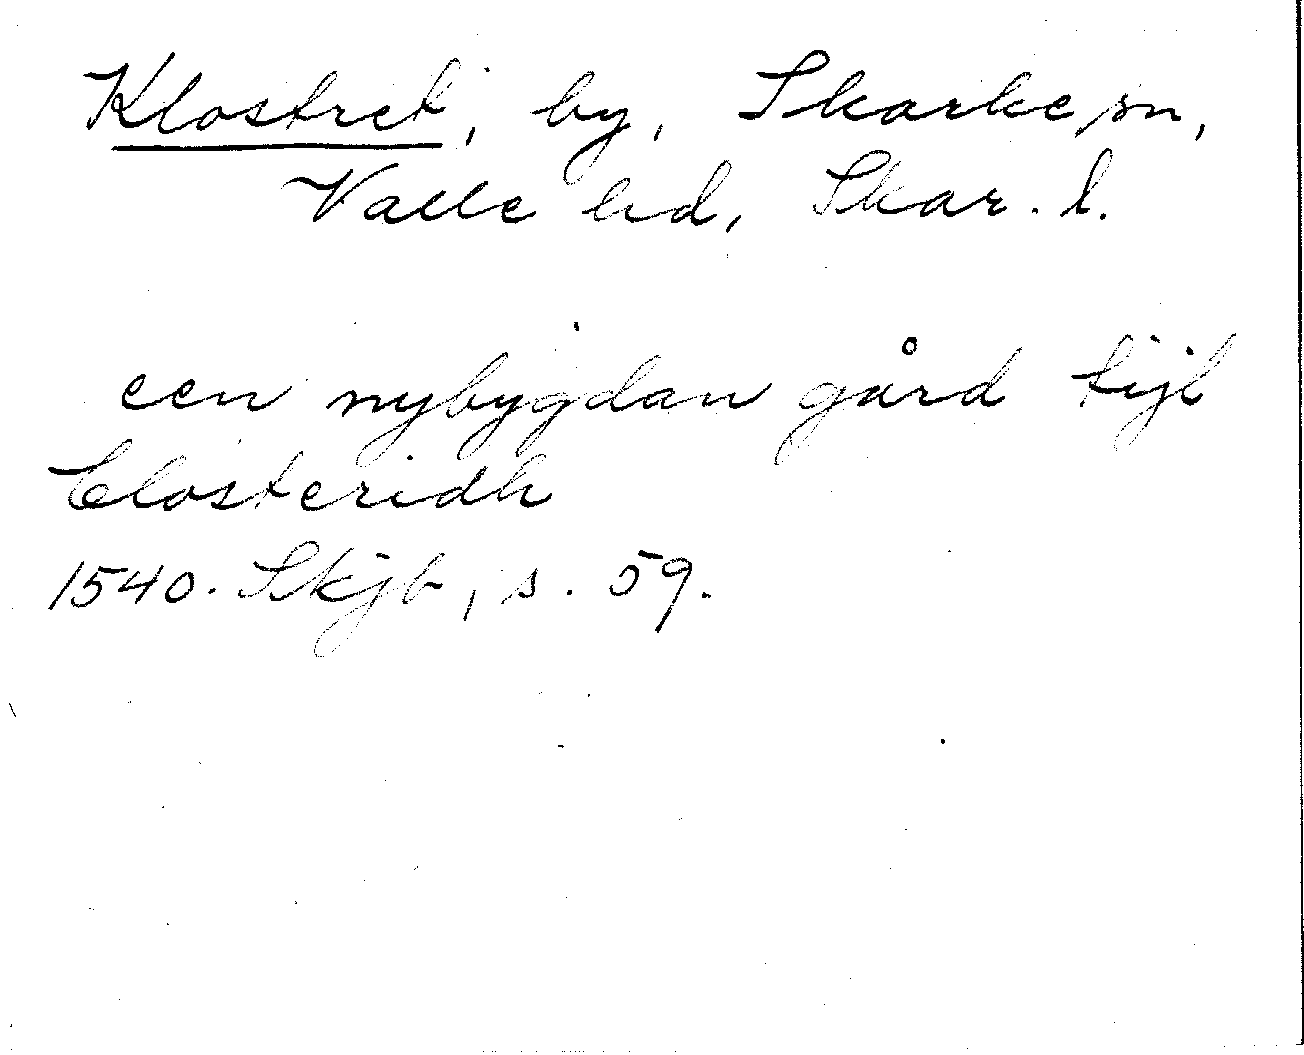 Klostret, by, Skarke sn,
Valle hd, Skar. l.
een nybygdan gård tijl
Closteridh
1540. Skjb, s. 59.